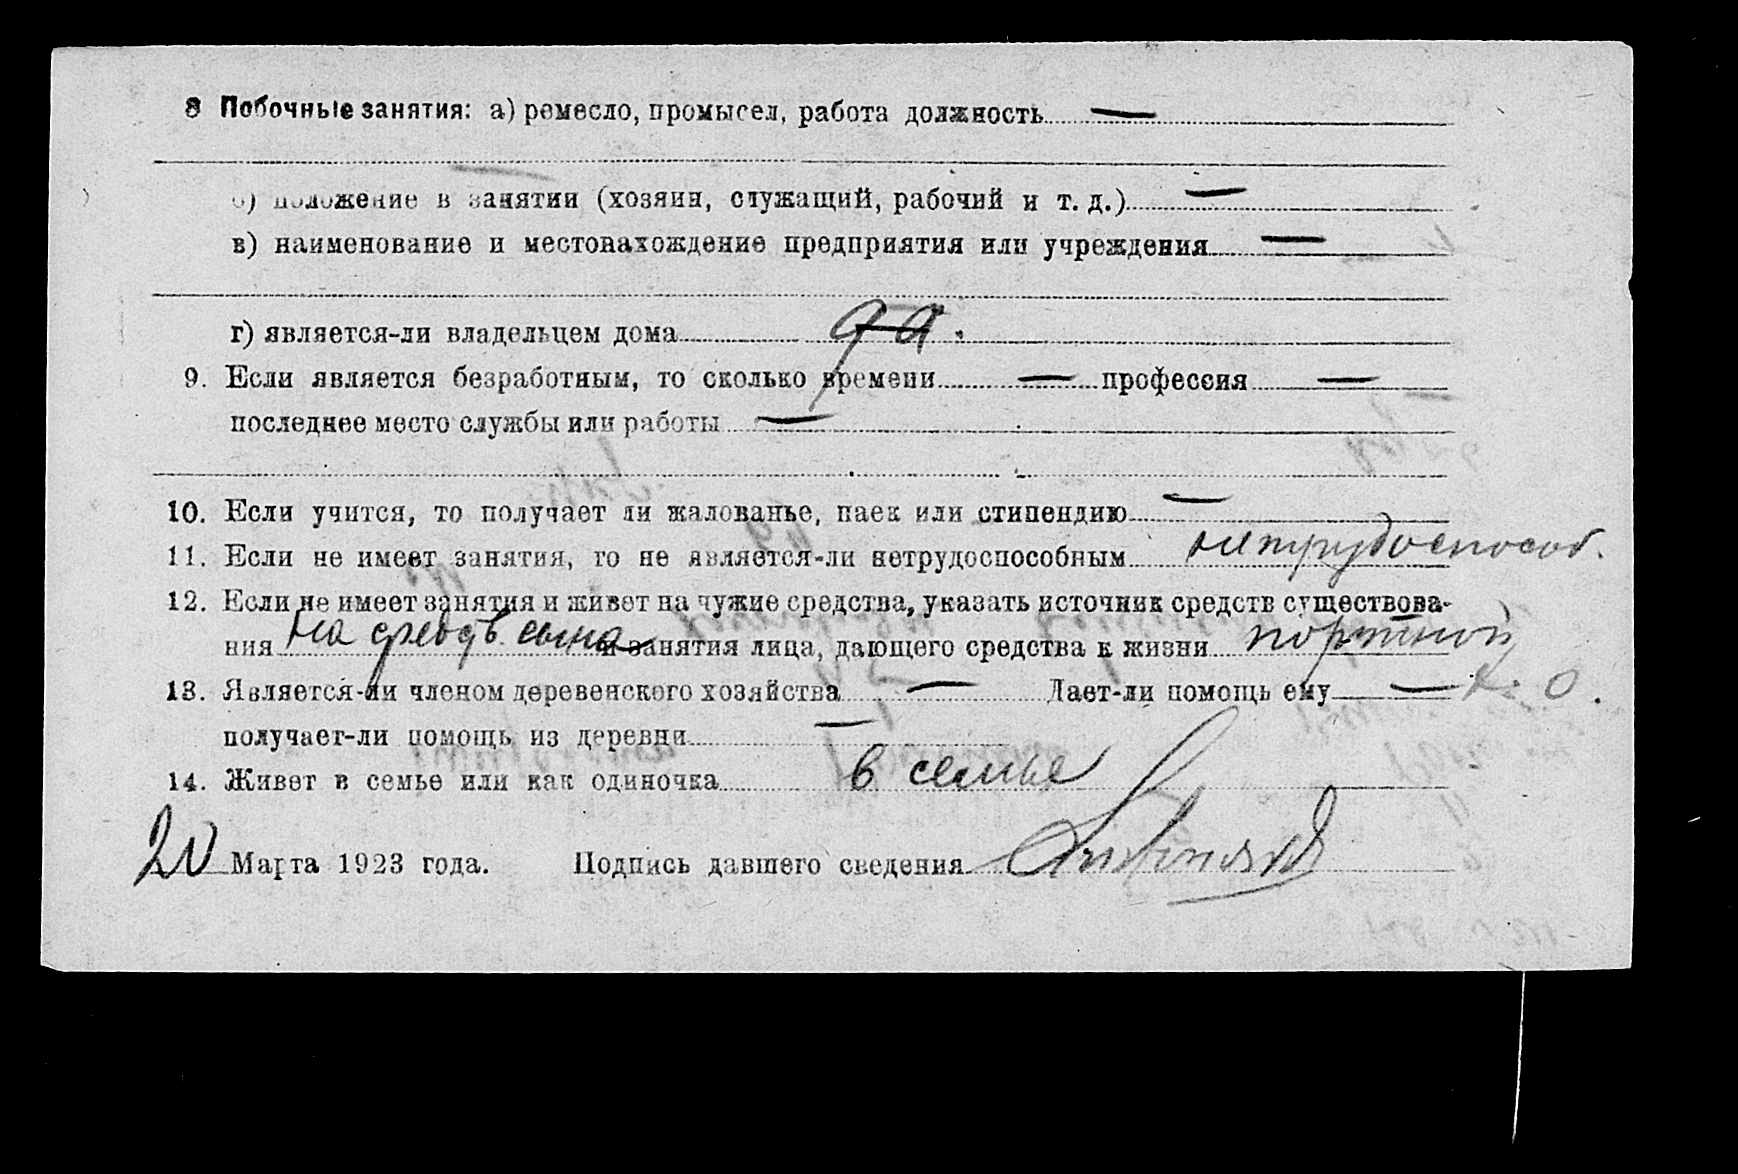 8 Побочные занятия: а) ремесло, промысел, работа должность —
б) положение в занятии (хозяин, служащий, рабочий и т. д.) —
в) наименование и местонахождение предприятия или учреждения —
г) является-ли владельцем дома да.
9. Если является безработным, то сколько времени — профессия —
последнее место службы или работы —
10. Если учится, то получает ли жалованье, паек или стипендию —
11. Если не имеет занятия, то не является-ли нетрудоспособным нетрудоспособ.
12. Если не имеет занятия и живет на чужие средства, указать источник средств существова-
ния На средств. сына и занятия лица, дающего средства к жизни портной
13. Является-ли членом деревенского хозяйства — Дает-ли помощь ему —
получает-ли помощь из деревни —
14. Живет в семье или как одиночка в семье
20 Марта 1923 года. Подпись давшего сведения